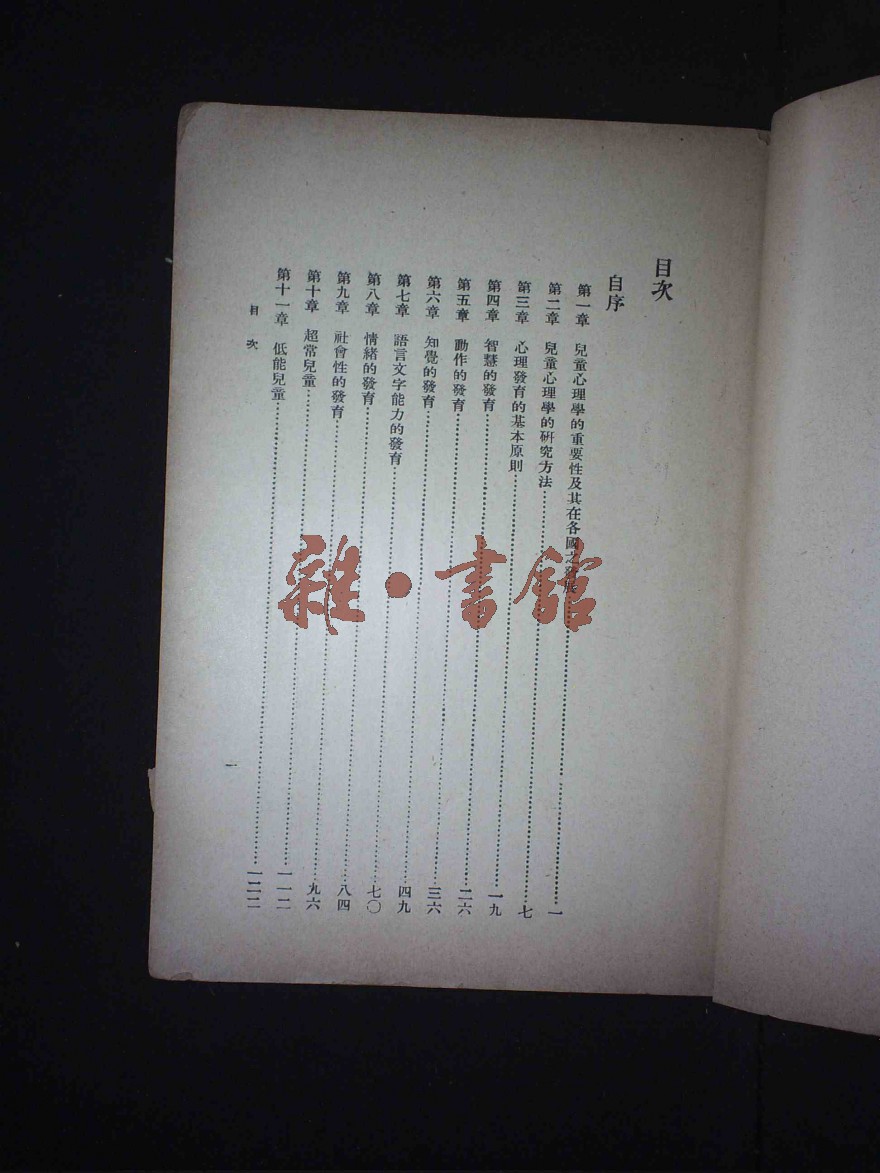 目次
自序
第一章 兒童心理學的重要性及其在各國之發展……一
第二章 兒童心理學的研究方法……七
第三章 心理發育的基本原則……一九
第四章 智慧的發育……二六
第五章 動作的發育……三六
第六章 知覺的發育……四九
第七章 語言文字能力的發育……七〇
第八章 情緒的發育……八四
第九章 社會性的發育……九六
第十章 超常兒童……一一二
第十一章 低能兒童……一二二
目次
一
雜·書館